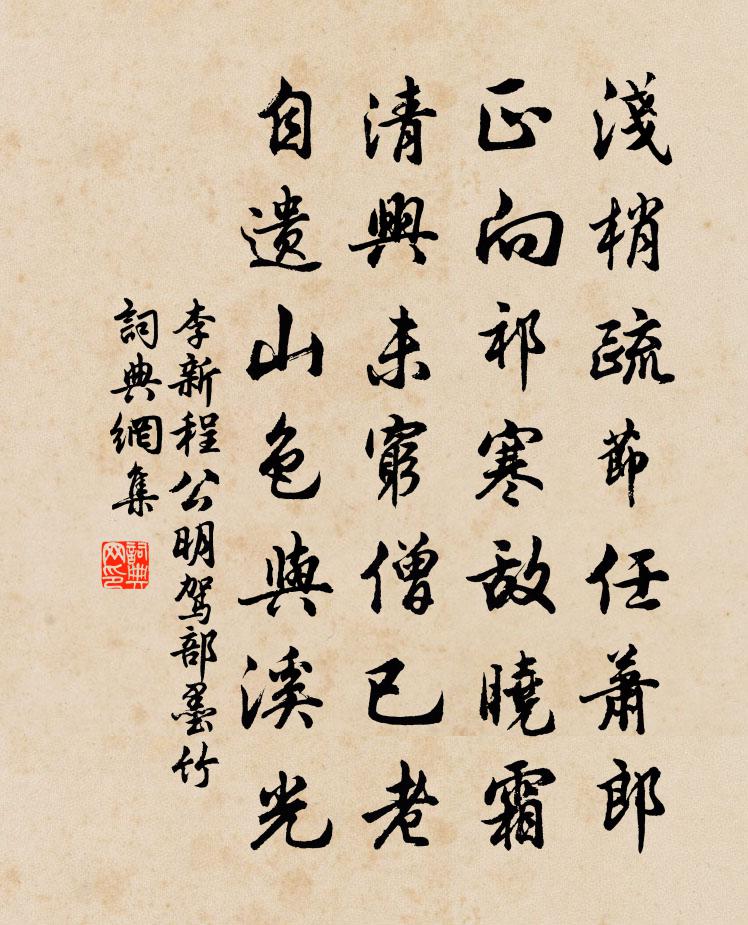 淺梢疏節任蕭郎
正向祁寒敵曉霜
清興未窮僧已老
自遺山色與溪光
李新程公明駕部墨竹
詞典網集
詞典网印